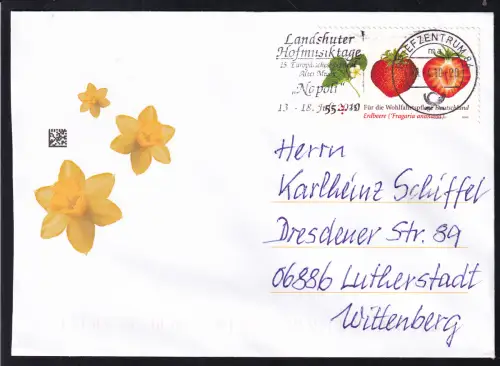 Landshuter
Hofmusiktage
15. Europäisches
Alter Musik
„Napoli“
13 - 18. Juli 2010
BRIEFZENTRUM 84
55+20 Für die Wohlfahrtspflege Deutschland
Erdbeere (Fragaria ananassa)
Herrn
Karlheinz Schiffel
Dresdener Str. 89
06886 Lutherstadt
Wittenberg